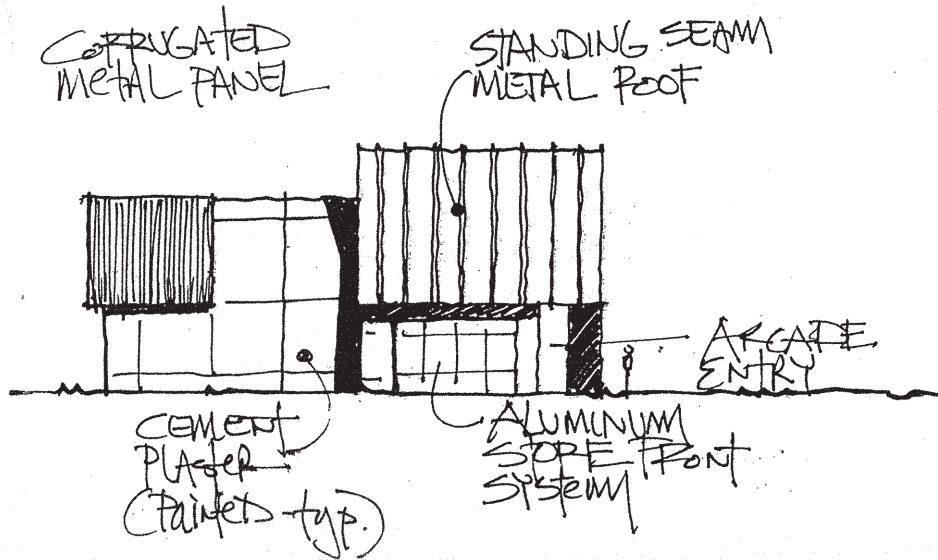 CORRUGATED
METAL PANEL
STANDING SEAM
METAL ROOF
ARCADE
ENTRY
CEMENT
PLASTER
(PAINTED - typ.)
ALUMINUM
STORE FRONT
SYSTEM